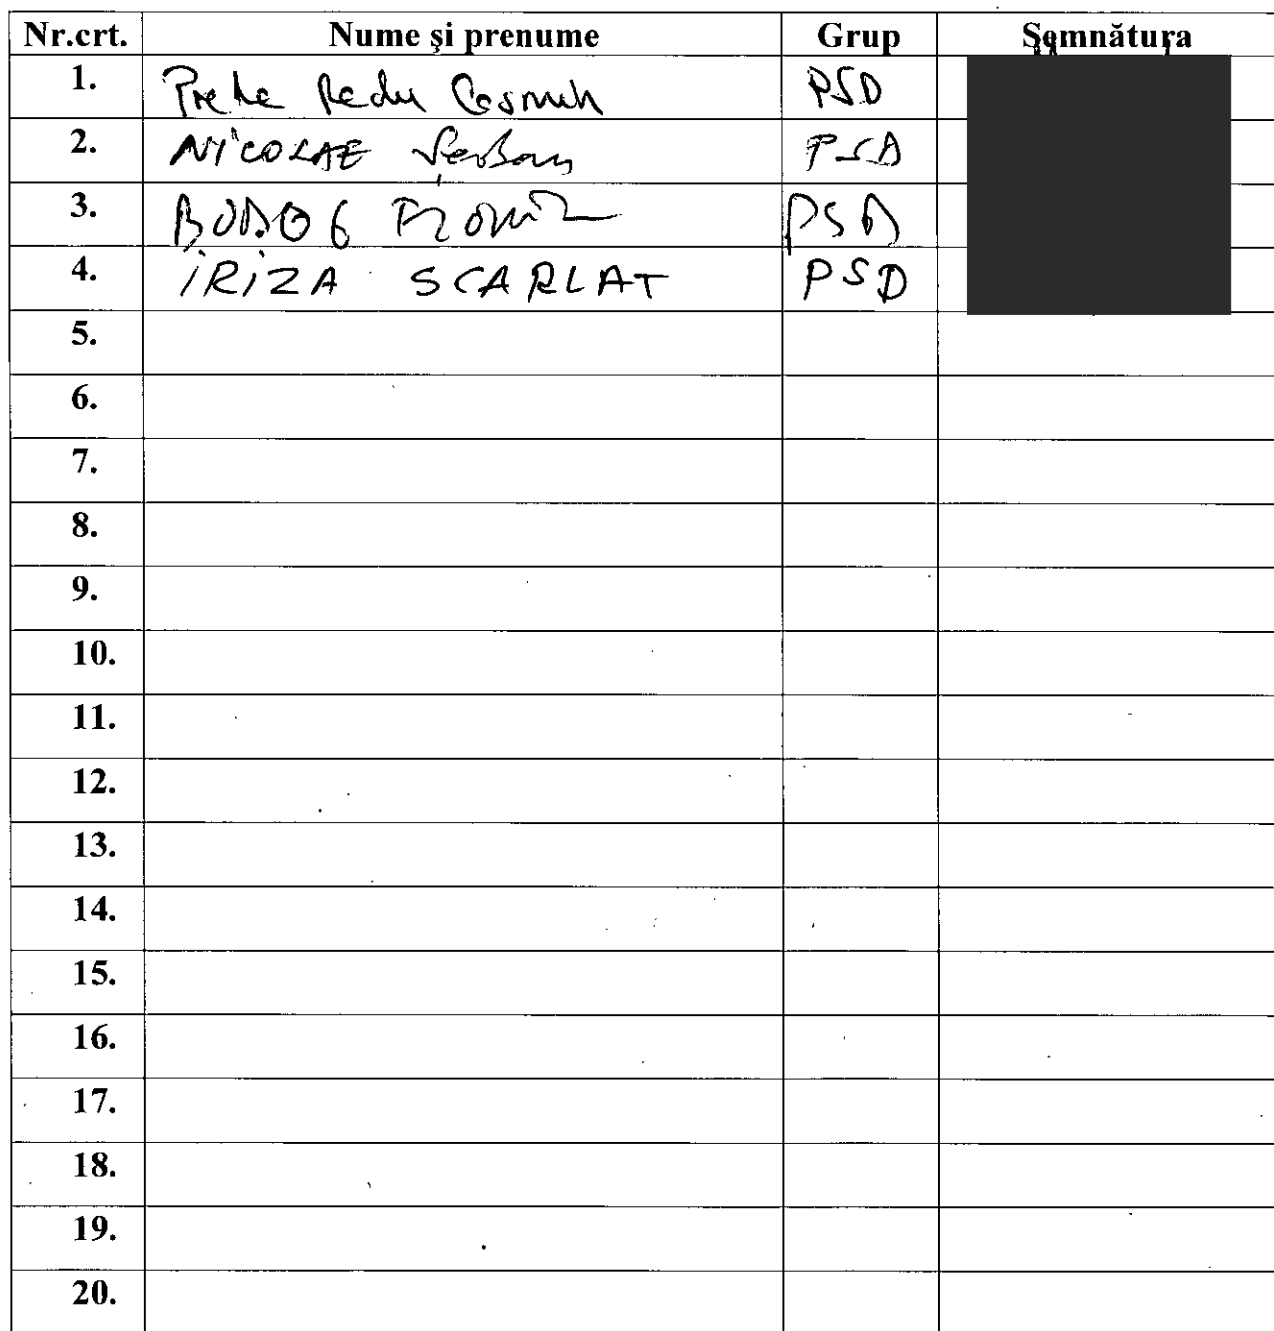 Nr.crt. Nume și prenume Grup Semnătura
1. Preda Radu Cosmin PSD
2. NICOLAE Șerban PSD
3. BODOG PSD
4. IRIZA SCARLAT PSD
5.
6.
7.
8.
9.
10.
11.
12.
13.
14.
15.
16.
17.
18.
19.
20.